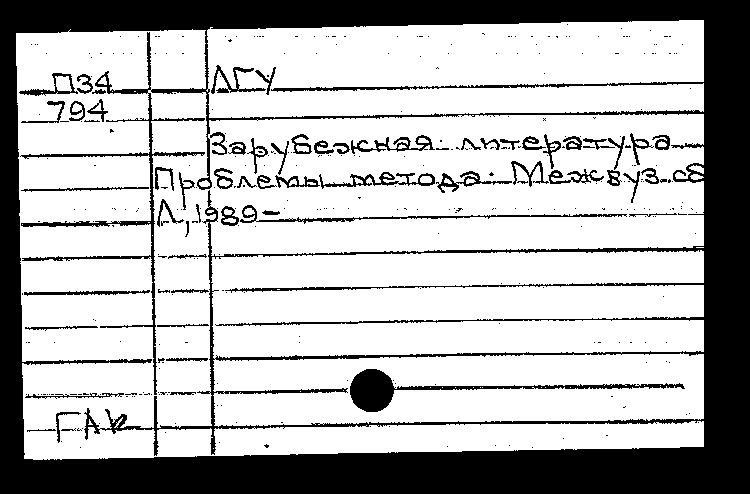 П34 ЛГУ
794
Зарубежная литература
Проблемы метода: Межвуз.сб
Л,1989-
ГАК